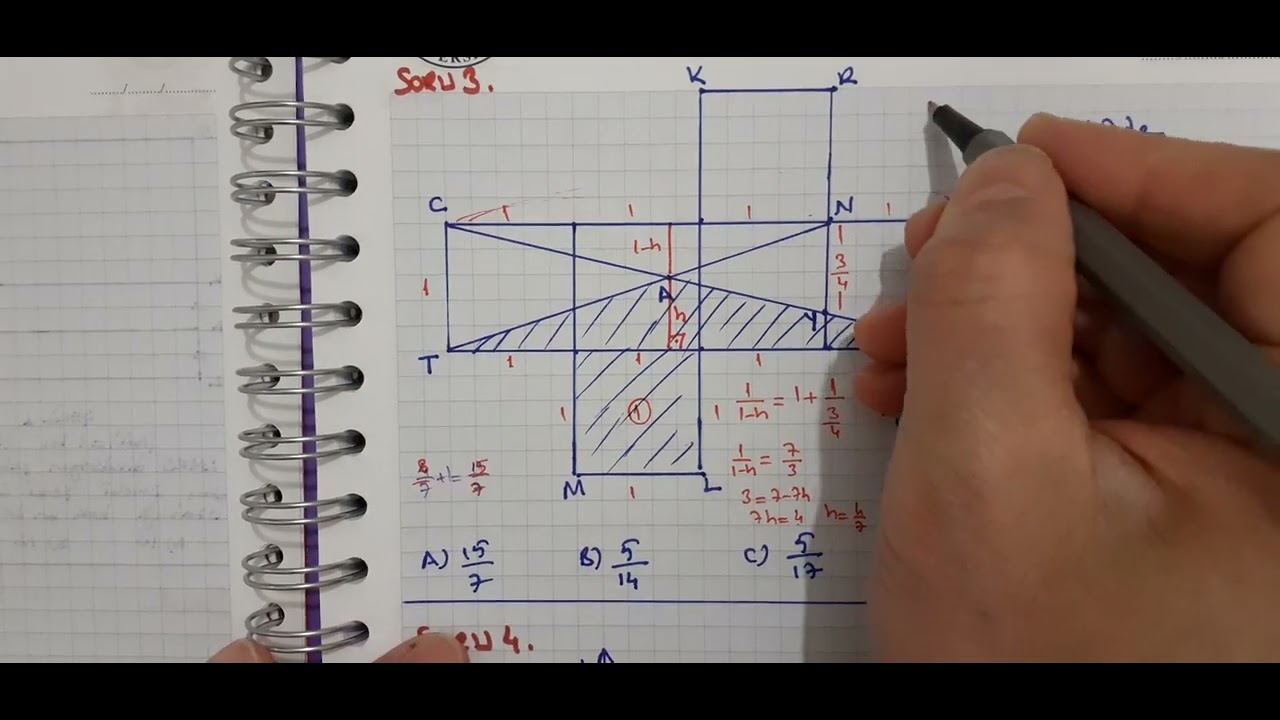 ERSI
SORU 3.
K R
C 1 1 1 N 1
1-h 1
3/4
1 A h 1
Y
T 1 1 1
1 1 1
1/(1-h) = 1 + 1/(3/4)
8/7 + 1 = 15/7
1/(1-h) = 7/3
M 1 L
3 = 7-7h
7h = 4 h = 4/7
A) 15/7 B) 5/14 C) 5/17
SORU 4.